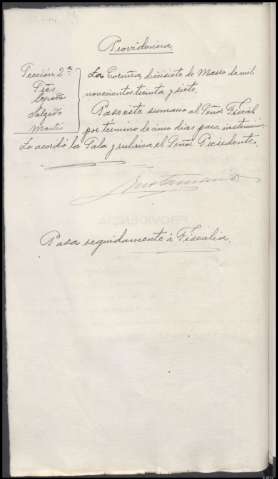 Providencia
Sección 2ª
Tres
Salgado
La Coruña diecisiete de Marzo de mil
novecientos treinta y siete.
Pase este sumario al Señor Fiscal
por término de cinco dias para instrucción.
Lo acordó la Sala y rubrica el Señor Presidente.
Pasa seguidamente á Fiscalia.